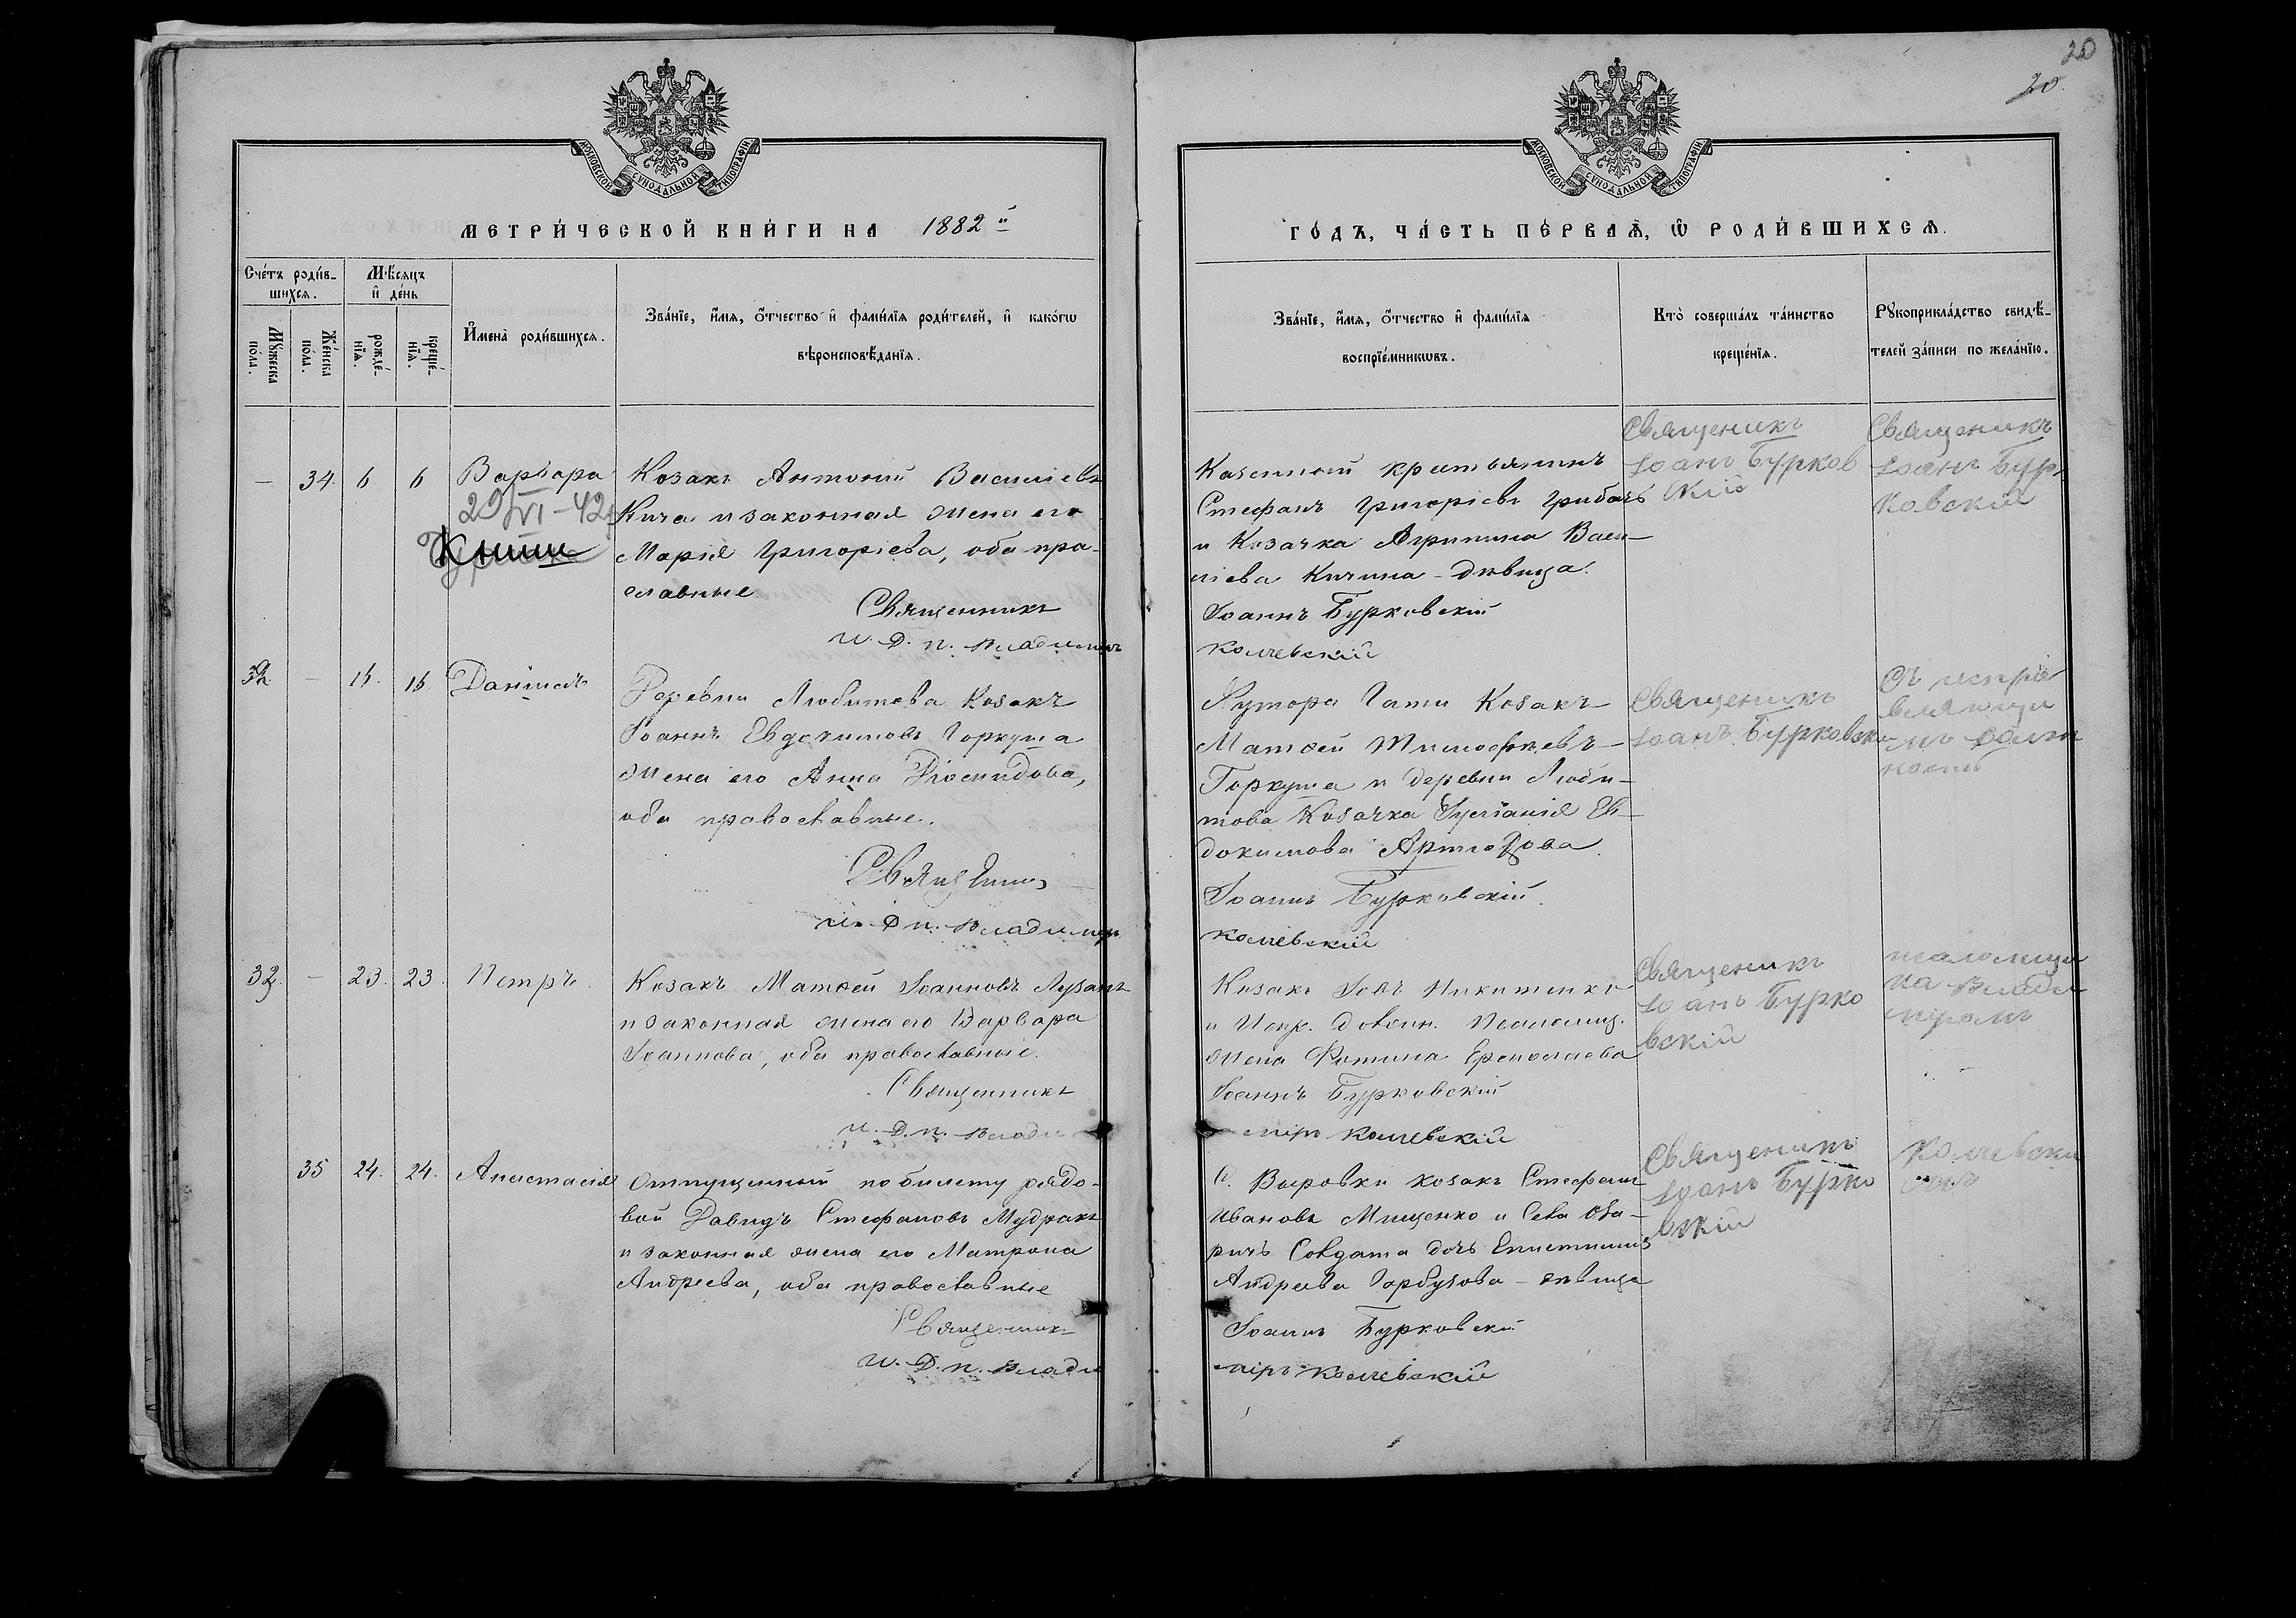 20
20.
МОСКОВСКОЙ СѴНОДАЛЬНОЙ ТИПОГРАФІИ
МОСКОВСКОЙ СѴНОДАЛЬНОЙ ТИПОГРАФІИ
МЕТРИ́ЧЕСКОЙ КНИ́ГИ НА 1882 й
ГО́ДЪ, ЧА́СТЬ ПЕ́РВАѦ, Ѿ РОДИ́ВШИХСѦ.
Сче́тъ роди́в-
шихсѧ.
Мѣ́сѧцъ
и҆ де́нь
Мꙋ́жеска по́ла.
Же́нска по́ла.
рожде́-нїѧ.
креще́-нїѧ.
И҆мена̀ роди́вшихсѧ.
Зва́нїе, и҆́мѧ, ѻ҆́тчество и҆ фами́лїѧ роди́телей, и҆ како́гѡ
вѣроисповѣ́данїѧ.
Зва́нїе, и҆́мѧ, ѻ҆́тчество и҆ фами́лїѧ
воспрїе́мникѡвъ.
Кто̀ соверша́лъ та́инство
креще́нїѧ.
Рꙋкоприкла́дство свидѣ́-
телей за́писи по жела́нїю.
— 34. 6 6 Варвара
29/VI - 42
Козакъ Антоній Василіевъ
Кича и законная жена его
Марія Григоріева, оба пра-
славные.
Священникъ
и. д. п. Владиміръ
Казенный крестьянинъ
Стефанъ Григоріевъ Грибачъ
и Козачка Агрипина Васи-
ліева Кичина - дѣвица.
Іоаннъ Бурковскій
Колчевскій
Священикъ
Іоанъ Бурков
скій
Священикъ
Іоанъ Бур-
ковскій
32. — 16. 16 Даніилъ
Деревни Любитова Козакъ
Іоаннъ Евдокимовъ Горкуша
жена его Анна Діомидова,
оба православные.
Священникъ
и. д. п. Владимір
Хутора Гати Козакъ
Матѳей Тимофѣевъ
Горкуша и деревни Люби-
това Козачка Іуліанія Ев-
докимова
Іоаннъ Бурковскій.
Колчевскій
Священикъ
Іоанъ Бурковскій
Съ испра
вляющи
мъ долж
ность
32. — 23. 23. Петръ.
Козакъ Матѳей Іоанновъ
и законная жена его Варвара
Іоаннова, оба православные.
Священникъ
и. д. п. Влади
Козакъ Іовъ Никитенко
и Испр. должн. Псаломщ.
жена Фотина Ермолаева
Іоаннъ Бурковскій
міръ Колчевскій
Священикъ
Іоанъ Бурко
вскій
псаломщи
ка Влади
міромъ
35 24. 24. Анастасія
Отпущенный по билету рядо-
вой Давидъ Стефановъ Мудракъ
и законная жена его Матрона
Андреева, оба православные
Священникъ
и. д. п. Влади
С. Выровки козакъ Стефанъ
Ивановъ Мищенко и Села Оба-
ричъ Солдата дочь
Андреева Гарбузова - дѣвица
Іоаннъ Бурковскій
міръ Колчевскій
Священикъ
Іоанъ Бурко
вскій
Колчевски